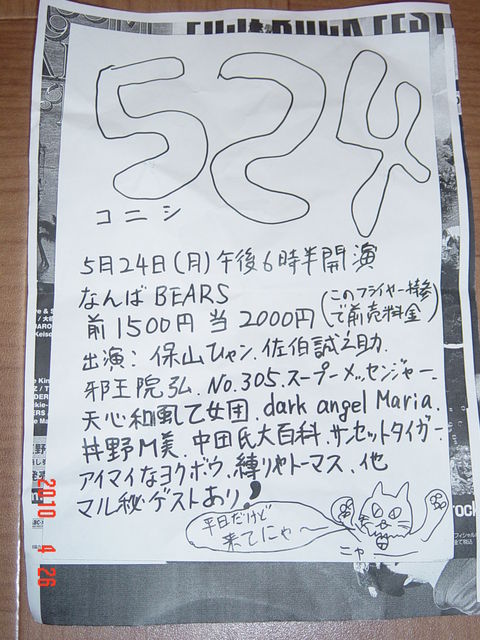 FUJI ROCK FEST
524
コニシ
5月24日(月)午後6時半開演
なんばBEARS
前1500円 当2000円(このフライヤー持参で前売料金)
出演:保山ひャン.佐伯誠之助.
邪王院弘.No.305.スープーメッセンジャー.
天心和風乙女団.dark angel Maria.
丼野M美.中田氏大百科.サンセットタイガー.
アイマイなヨクボウ.縛りやトーマス、他
マル秘ゲストあり!
平日だけど
来てにゃ〜
ニャ
rock
2010 4 26